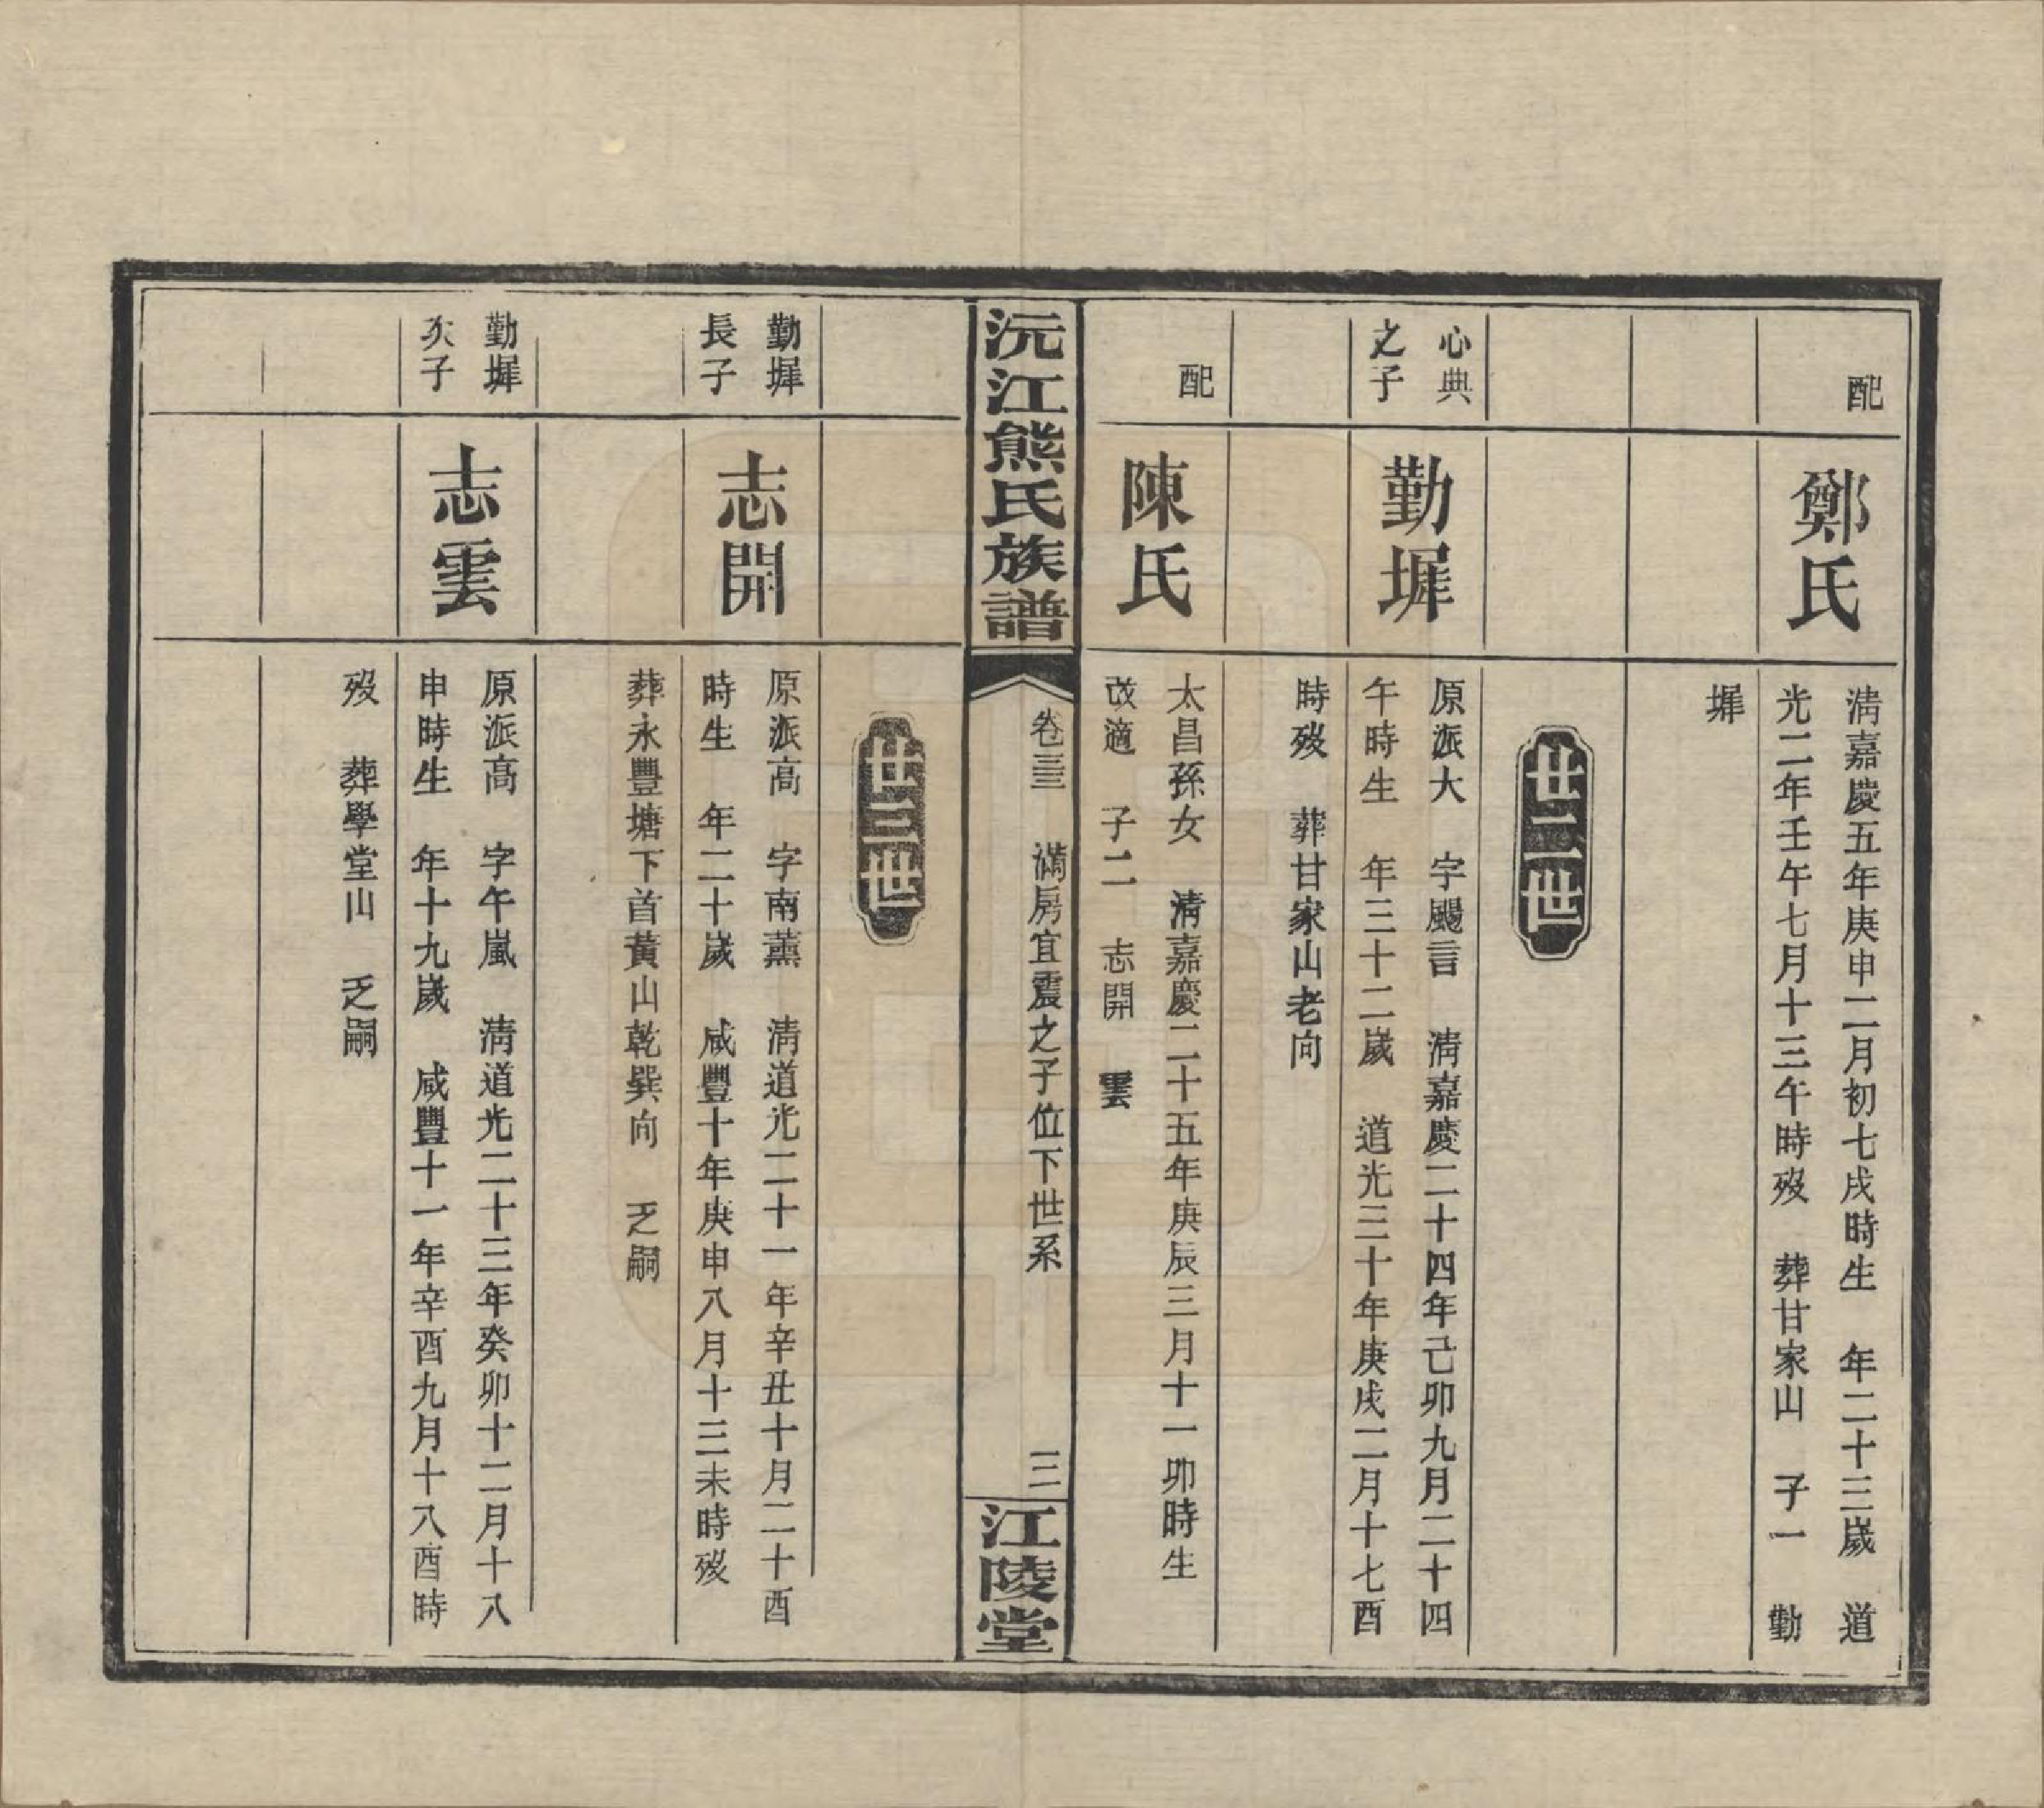 配
鄭氏
淸嘉慶五年庚申二月初七戌時生　年二十三歲　道
光二年壬午七月十三午時歿　葬甘家山　子一　勤
墀
廿二世
心典
之子
勤墀
原派大　字颺言　淸嘉慶二十四年己卯九月二十四
午時生　年三十二歲　道光三十年庚戌二月十七酉
時歿　葬甘家山老向
配
陳氏
太昌孫女　淸嘉慶二十五年庚辰三月十一卯時生
改適　子二　志開　雲
沅江熊氏族譜
卷三三　滿房宜震之子位下世系
三
江陵堂
廿三世
勤墀
長子
志開
原派高　字南薰　淸道光二十一年辛丑十月二十酉
時生　年二十歲　咸豐十年庚申八月十三未時歿
葬永豐塘下首黃山乾巽向　乏嗣
勤墀
次子
志雲
原派高　字午嵐　淸道光二十三年癸卯十二月十八
申時生　年十九歲　咸豐十一年辛酉九月十八酉時
歿　葬學堂山　乏嗣